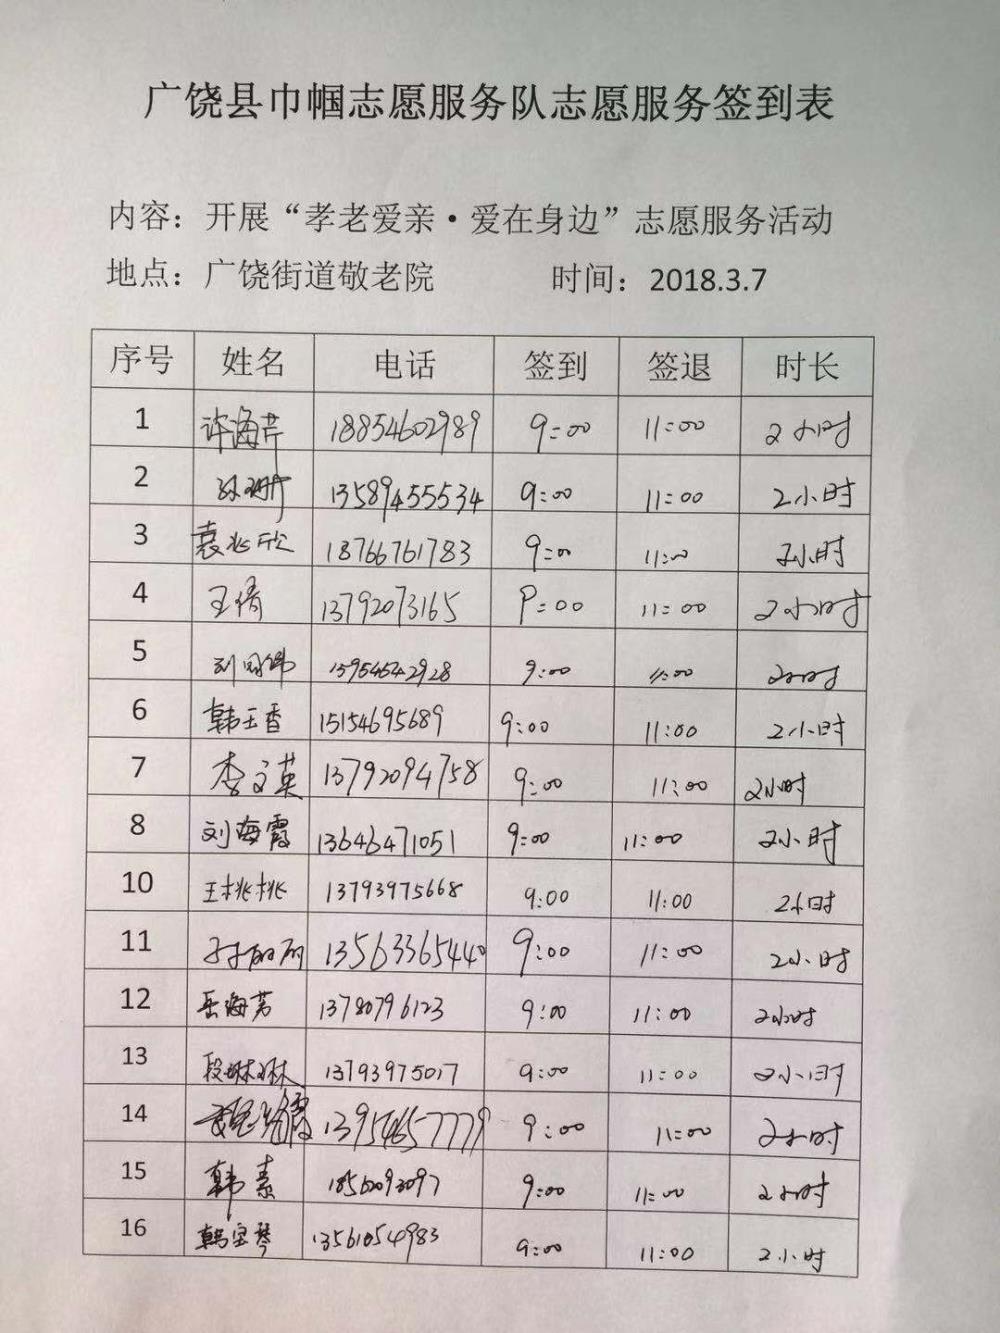 广饶县巾帼志愿服务队志愿服务签到表
内容：开展“孝老爱亲·爱在身边”志愿服务活动
地点：广饶街道敬老院 时间：2018.3.7
序号 姓名 电话 签到 签退 时长
1 许海芹 18854602989 9:00 11:00 2小时
2 13589455534 9:00 11:00 2小时
3 袁兆欣 18766761783 9:00 11:00 2小时
4 王倩 13792073165 9:00 11:00 2小时
5 15954642928 9:00 11:00 2小时
6 韩玉香 15154695689 9:00 11:00 2小时
7 李文英 13792094758 9:00 11:00 2小时
8 刘海霞 13646471051 9:00 11:00 2小时
10 王桃桃 13793975668 9:00 11:00 2小时
11 孙丽丽 13563365440 9:00 11:00 2小时
12 岳海芳 13780796123 9:00 11:00 2小时
13 段琳琳 13793975017 9:00 11:00 2小时
14 13954657779 9:00 11:00 2小时
15 韩素 9:00 11:00 2小时
16 韩宝琴 13561054983 9:00 11:00 2小时